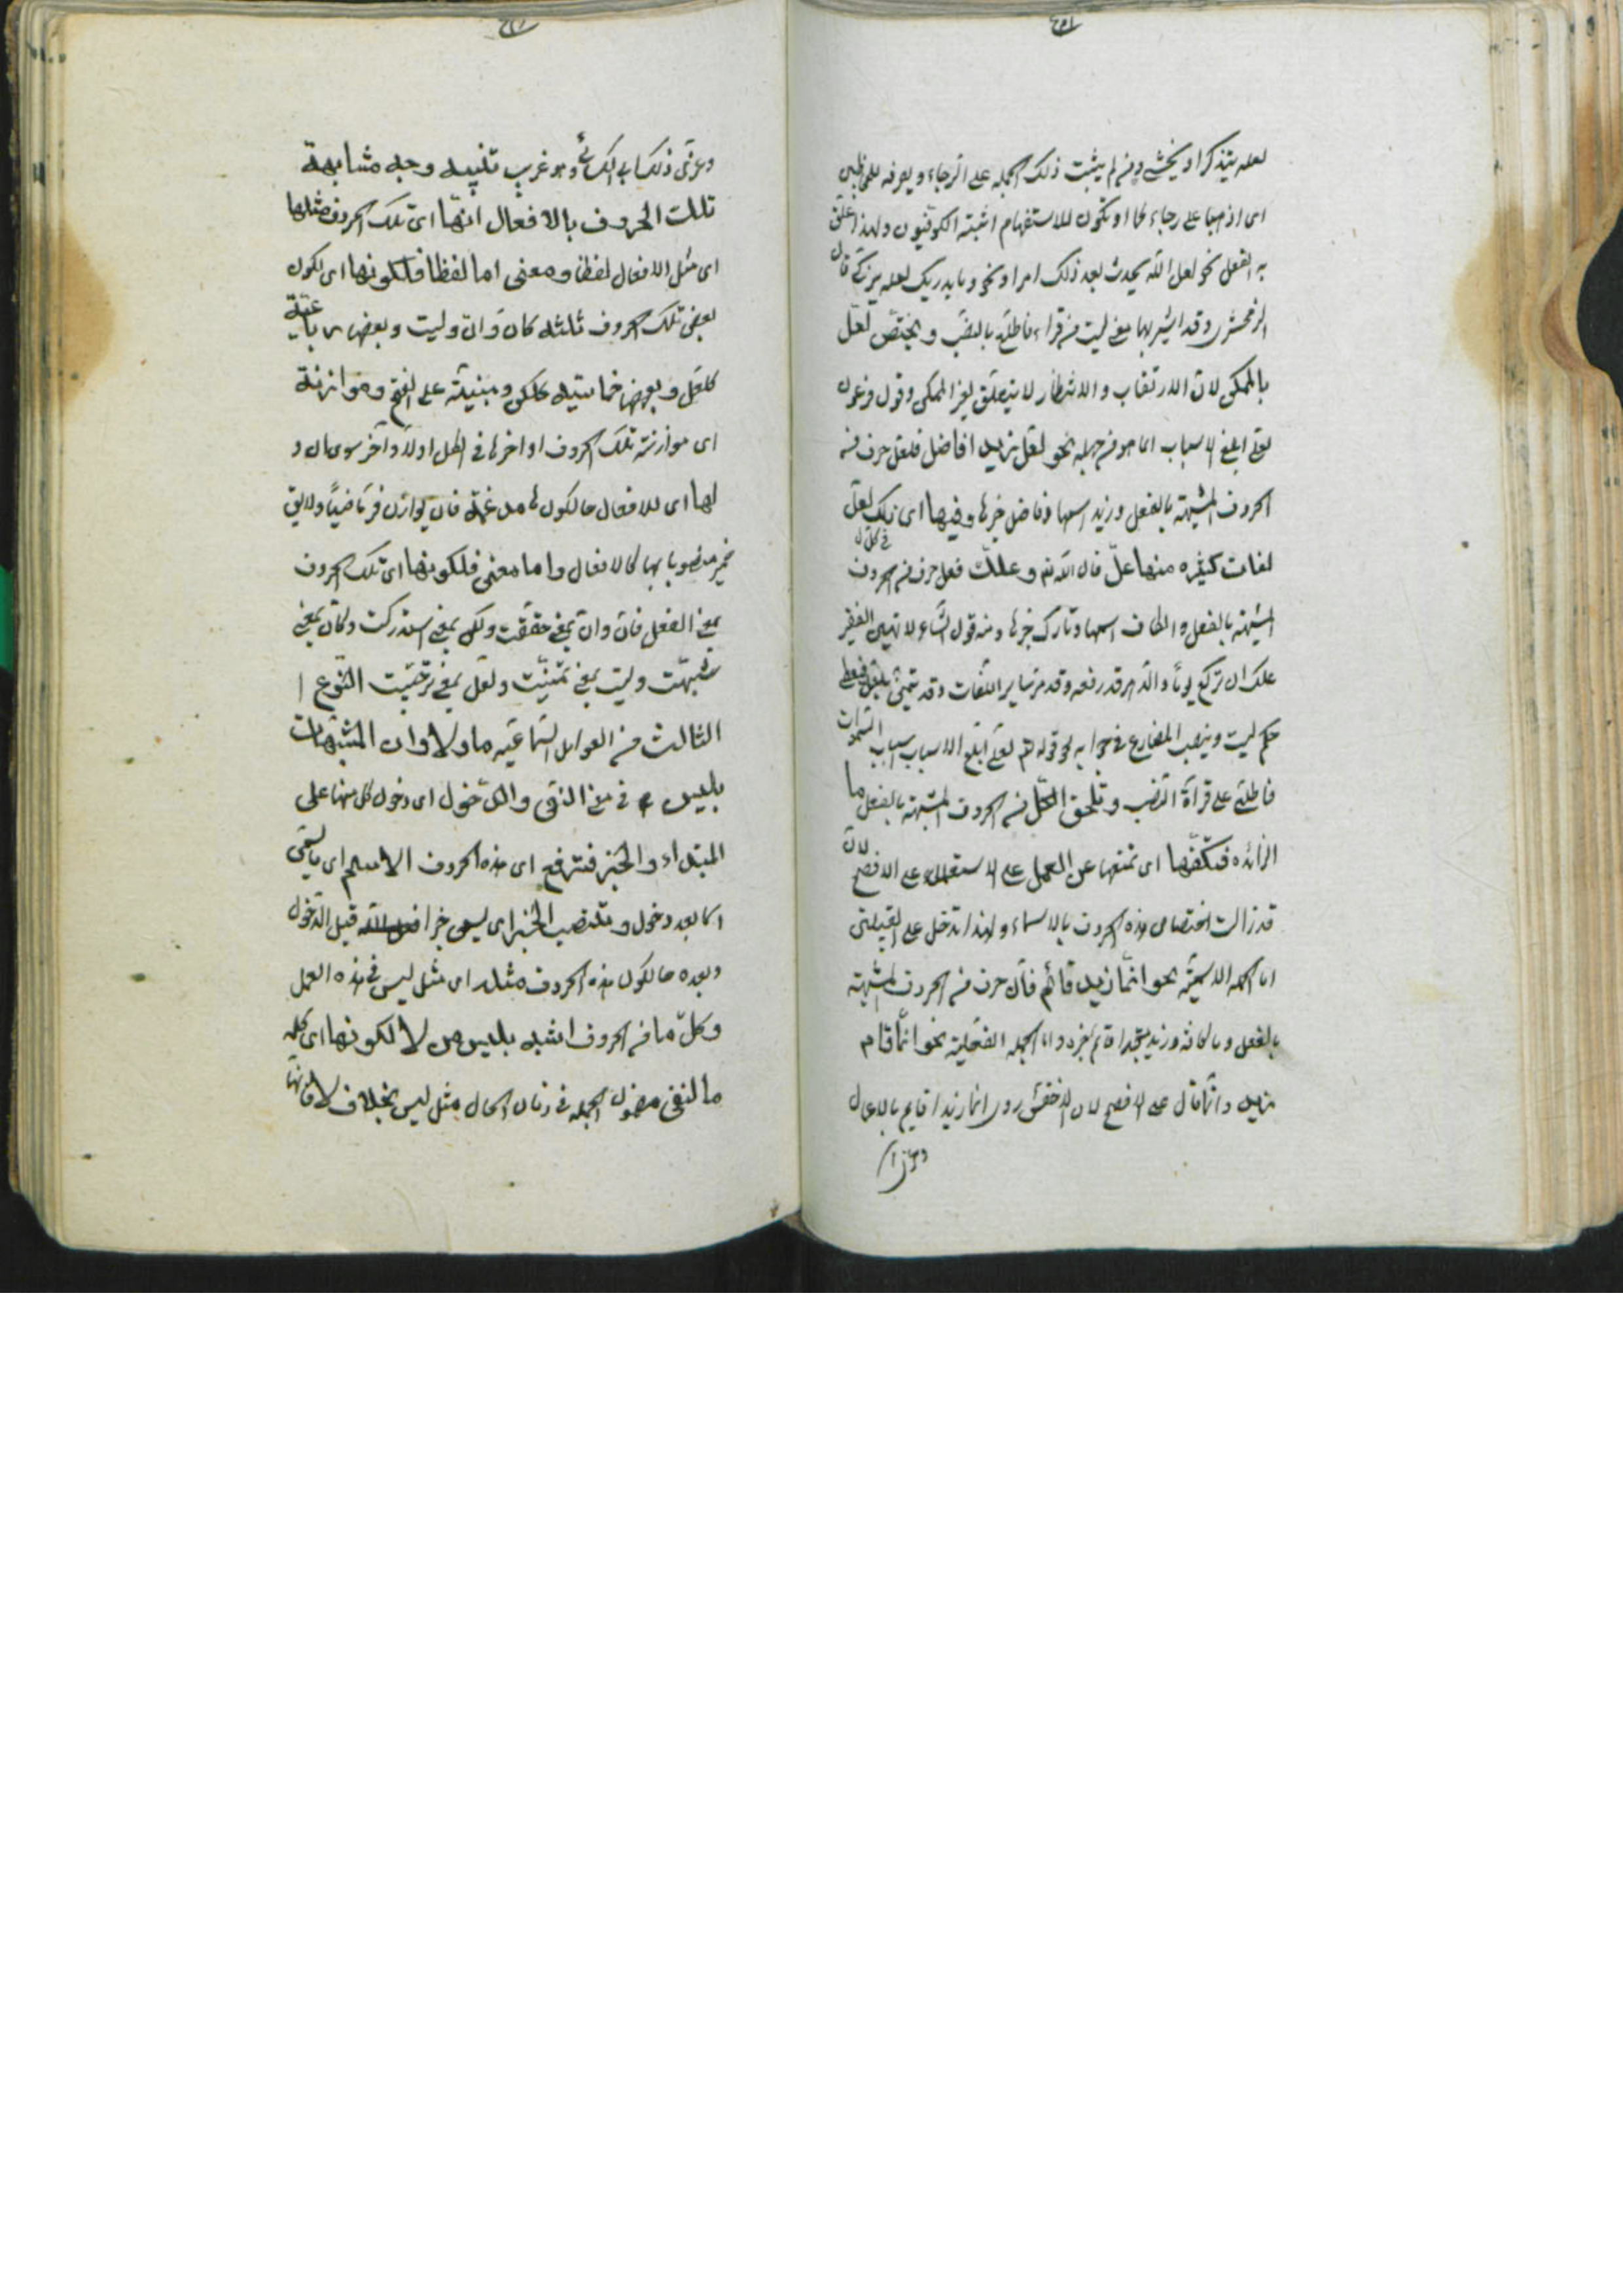 لعله يتذكر او يخشى ومن لم يثبت ذلك الجملة على الرجاء ويصرفه للمخاطبين
اى اذهبا على رجائكما او تكون للاستفهام اثبته الكوفيون ولهذا علق
به الفعل نحو لعل الله يحدث بعد ذلك امرا ونحو وما يدريك لعله يزكى قال
الزمخشرى وقد اشربها معنى ليت من قراء فاطلع بالنصب ويختص لعل
بالممكن لان الارتقاب والانتظار لا يتعلق بغير الممكن وقول فرعون
لعلى ابلغ الاسباب انما هو من جهله نحو لعل زيدا فاضل فلعل حرف من
الحروف المشبهة بالفعل وزيدا اسمها وفاضل خبرها وفيها اى تلك لعل
لغات كثيره منها علّ فى كقول قال وعلك فعل حرف من الحروف
المشبهة بالفعل والكاف اسمها وتارك خبرها ومنه قول الشاعر لا تهين الفقير
علك ان تركع يوما والدهر قد رفعه وقد مر سائر اللغات وقد يتمنى بلعل فيعطى
حكم ليت وينصب المضارع فى جوابه نحو قوله تعالى لعلى ابلغ الاسباب اسباب السموات
فاطلع على قرآءة النصب وتلحق الكل من الحروف المشبهة بالفعل ما
الزائده فتكفها اى تمنعها عن العمل على الاستعمال على الافصح لان
قد زالت اختصاص هذه الحروف بالاسماء ولهذا تدخل على القبيلتين
اما الجملة الاسمية نحو انما زيد قائم فان حرف من الحروف المشبهة
بالفعل وما كافه وزيد مبتدا قائم خبره واما الجملة الفعلية نحو انما قام
زيد وانما قال على الافصح لان الاخفش روى انما زيدا قايم بالاعمال
وعزى
وعزى ذلك الى الكسائى وهو غريب تنبيه وجه مشابهة
تلك الحروف بالافعال انها اى تلك الحروف مثلها
اى مثل الافعال لفظا ومعنى اما لفظا فلكونها اى لكون
بعض تلك الحروف ثلثه كان وان وليت وبعض رباعية
كلعل وبعضها خماسيه كلكن ومبنية على الفتح وموازنة
اى موازنة تلك الحروف اواخرها فى الكل اولا وآخر سوى ان و
لها اى للافعال حالكونها مدغمة فان يوازن فر ماضيا ولايق
ضمير منصوبا بها كالافعال واما معنى فلكونها اى تلك الحروف
بمعنى الفعل فان وان بمعنى حققت ولكن بمعنى استدركت وكان بمعنى
شبهت وليت بمعنى تمنيت ولعل بمعنى ترجيت النوع
الثالث من العوامل السماعيه ما ولا وان المشبهات
بليس فى معنى النفى والدخول اى دخول كل منها على
المبتداء والخبر فترفع اى هذه الحروف الاسم اى ما يسمى
اسما بعد دخول وتنصب الخبر اى يسمى خبرا قبل الدخول
وبعده حالكون هذه الحروف مثله اى مثل ليس فى هذه العمل
وكل ما من الحروف اشبه بليس من لا لكونها اى كلمة
ما لنفى مضمون الجملة فى زمان الحال مثل ليس بخلاف لا فانها